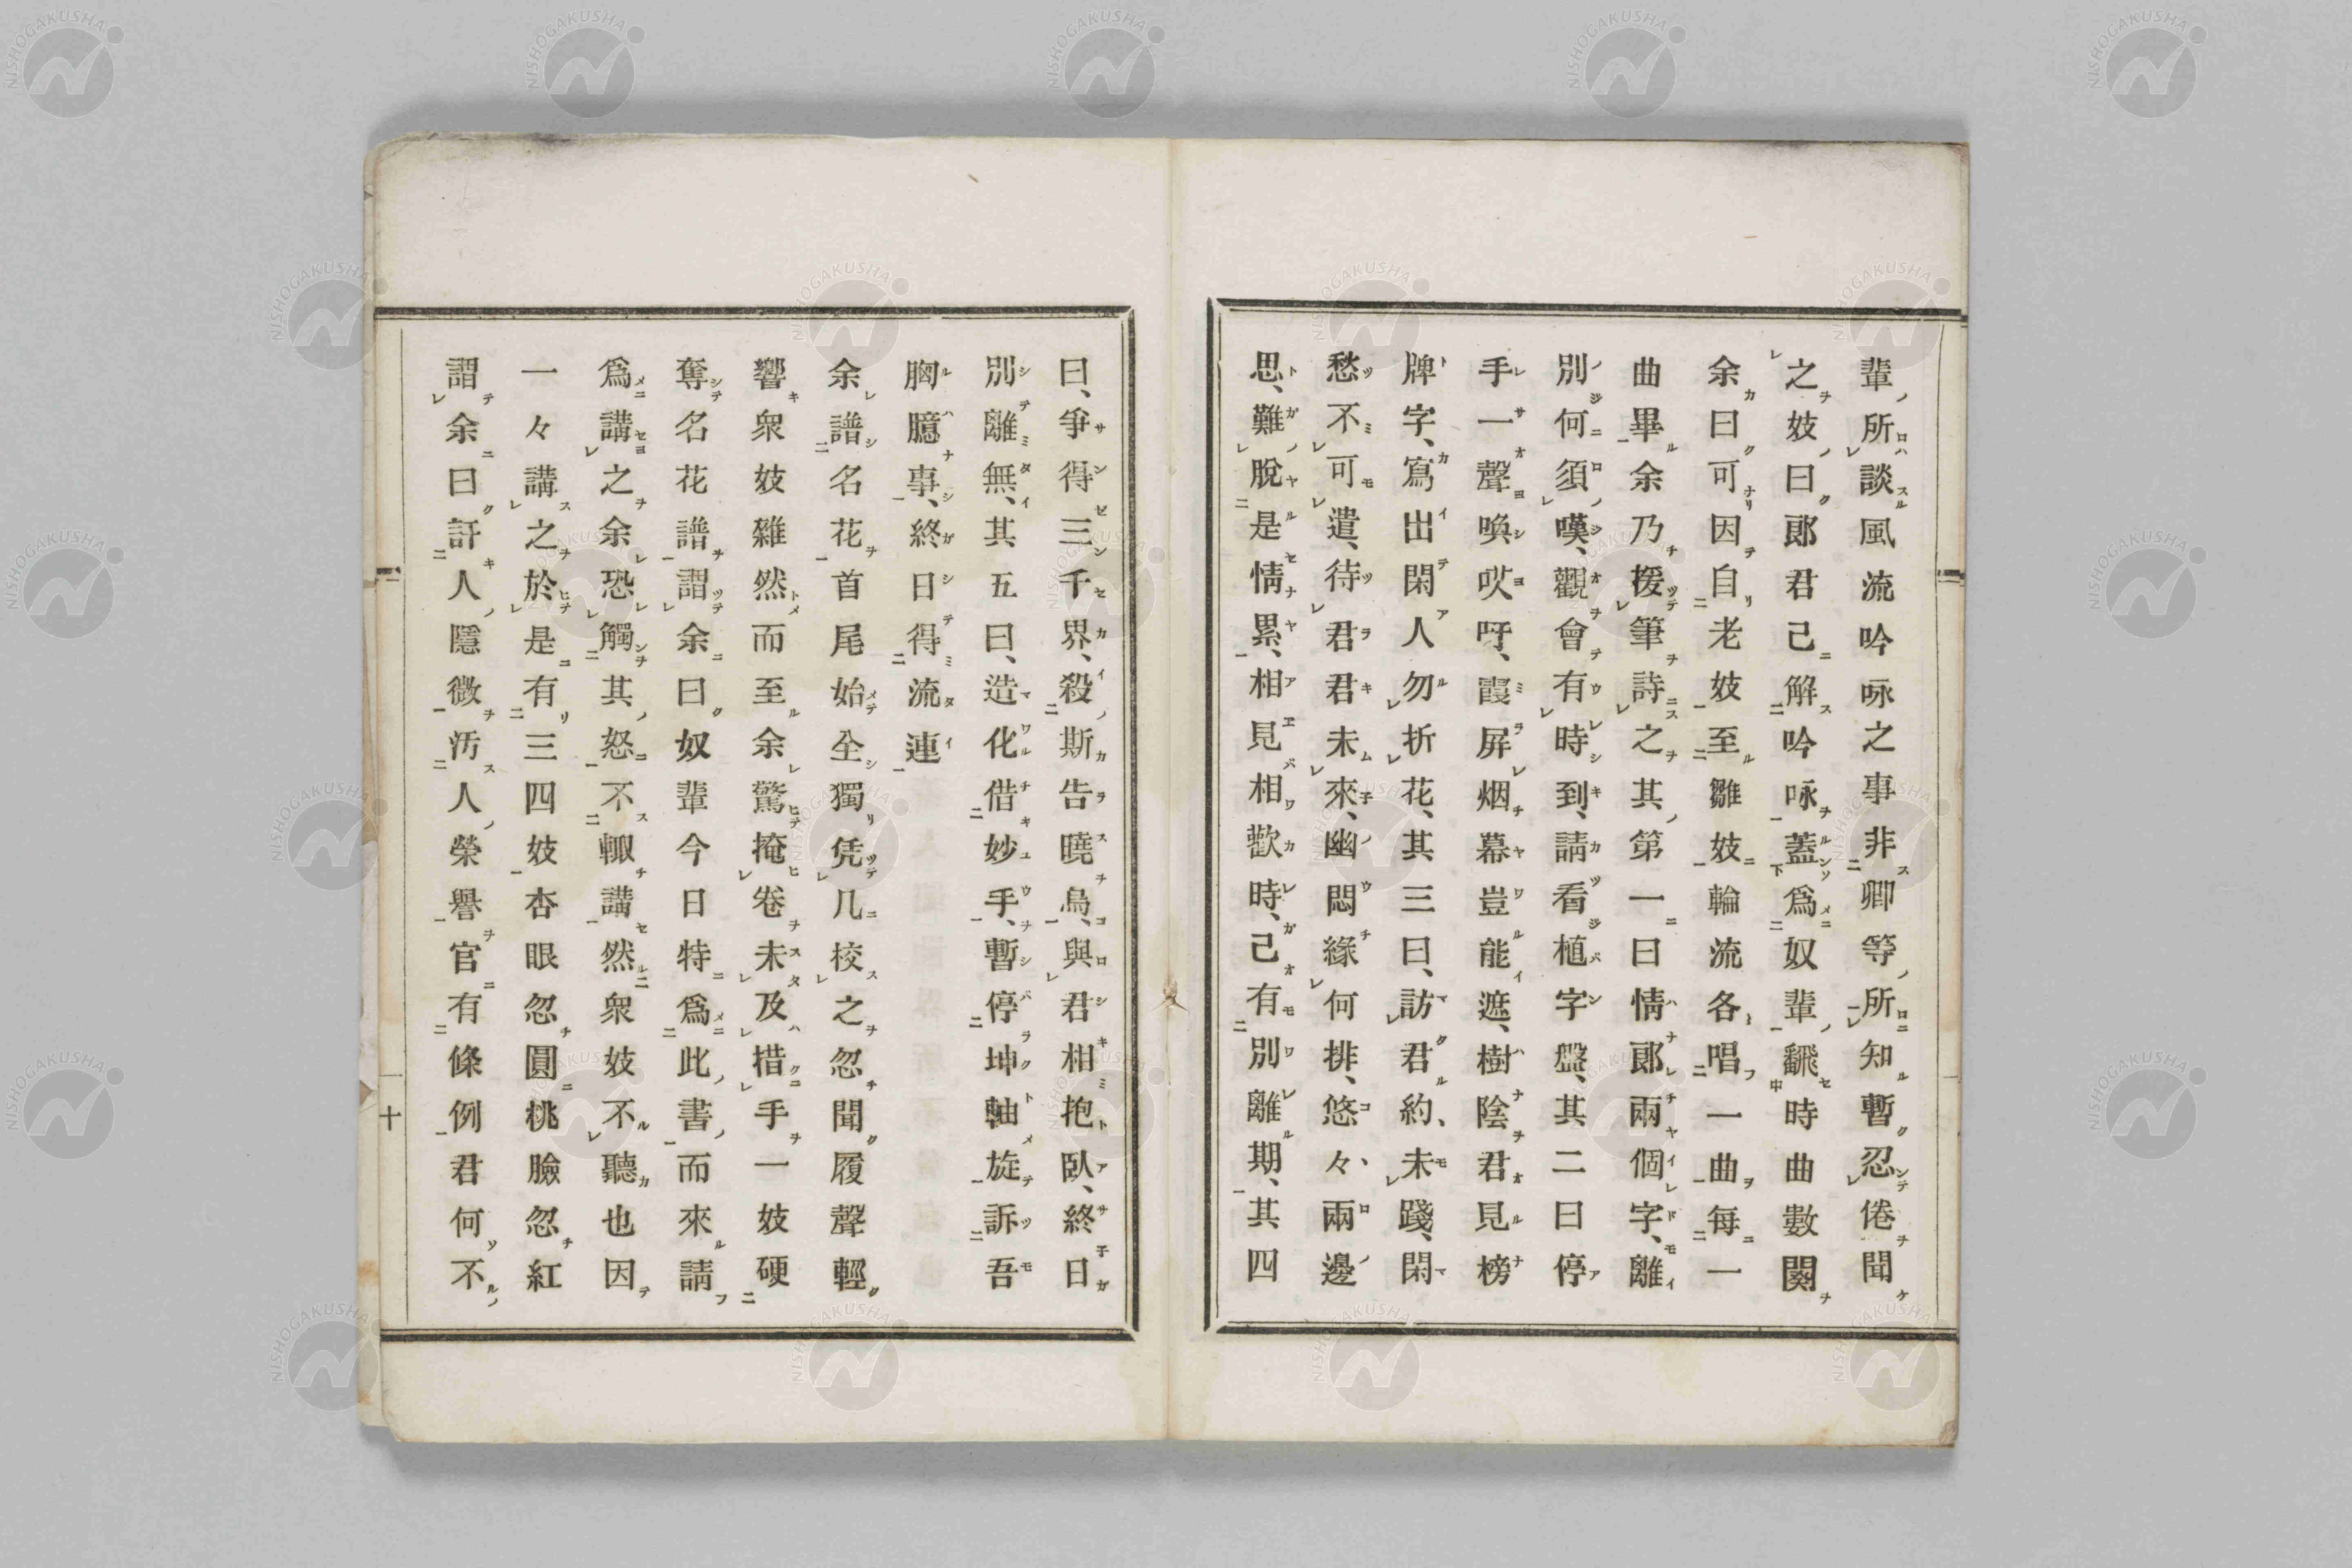 輩所談風流吟咏之事非卿等所知暫忍倦聞
之妓曰郎君己解吟咏蓋爲奴輩飜時曲數闋
余曰可因自老妓至雛妓輪流各唱一曲每一
曲畢余乃援筆詩之其第一曰情郎兩個字、離
別何須嘆、觀會有時到、請看植字盤、其二曰停
手一聲喚哎呀、霞屏烟幕豈能遮、樹陰君見榜
牌字、寫出閑人勿折花、其三曰、訪君約、未踐、閑
愁不可遣、待君君未來、幽悶緣何排、悠々兩邊
思、難脫是情累、相見相歡時、己有別離期、其四
曰、爭得三千界、殺斯告曉烏、與君相抱臥、終日
別離無、其五曰、造化借妙手、暫停坤軸旋訴吾
胸臆事、終日得流連
余譜名花首尾始全獨凭几校之忽聞履聲輕
響衆妓雜然而至余驚掩卷未及措手一妓硬
奪名花譜謂余曰奴輩今日特爲此書而來請
爲講之余恐觸其怒不輙講然衆妓不聽也因
一々講之於是有三四妓杏眼忽圓桃臉忽紅
謂余曰訐人隱微汚人榮譽官有條例君何不
十
NISHOGAKUSHA